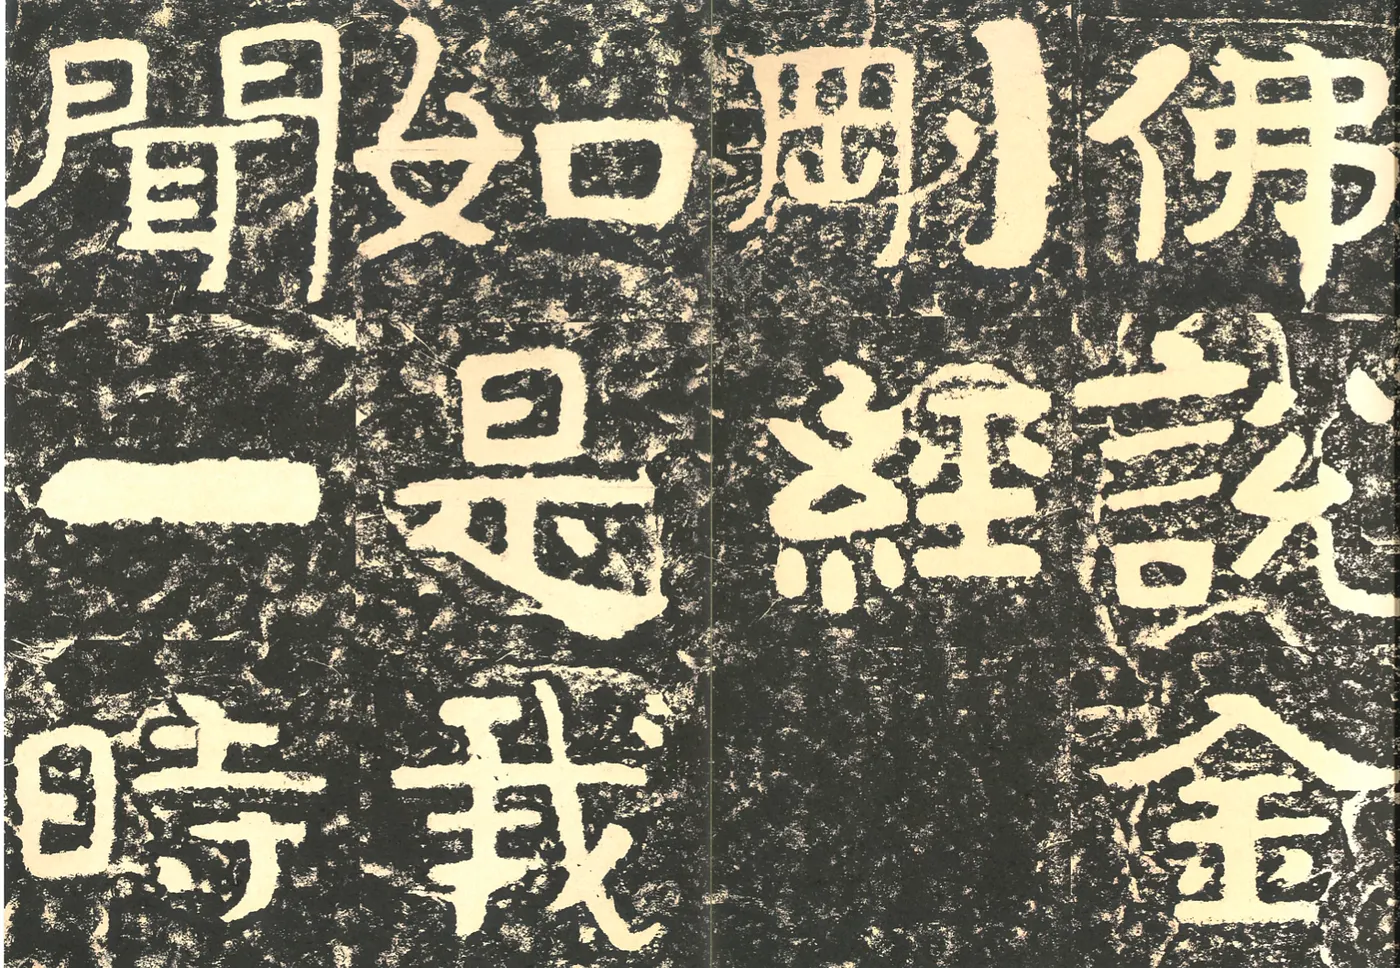 佛說金
剛經
如是我
聞一時